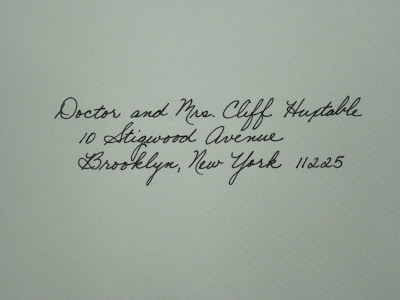 Doctor and Mrs. Cliff Huxtable
10 Stigwood Avenue
Brooklyn, New York 11225